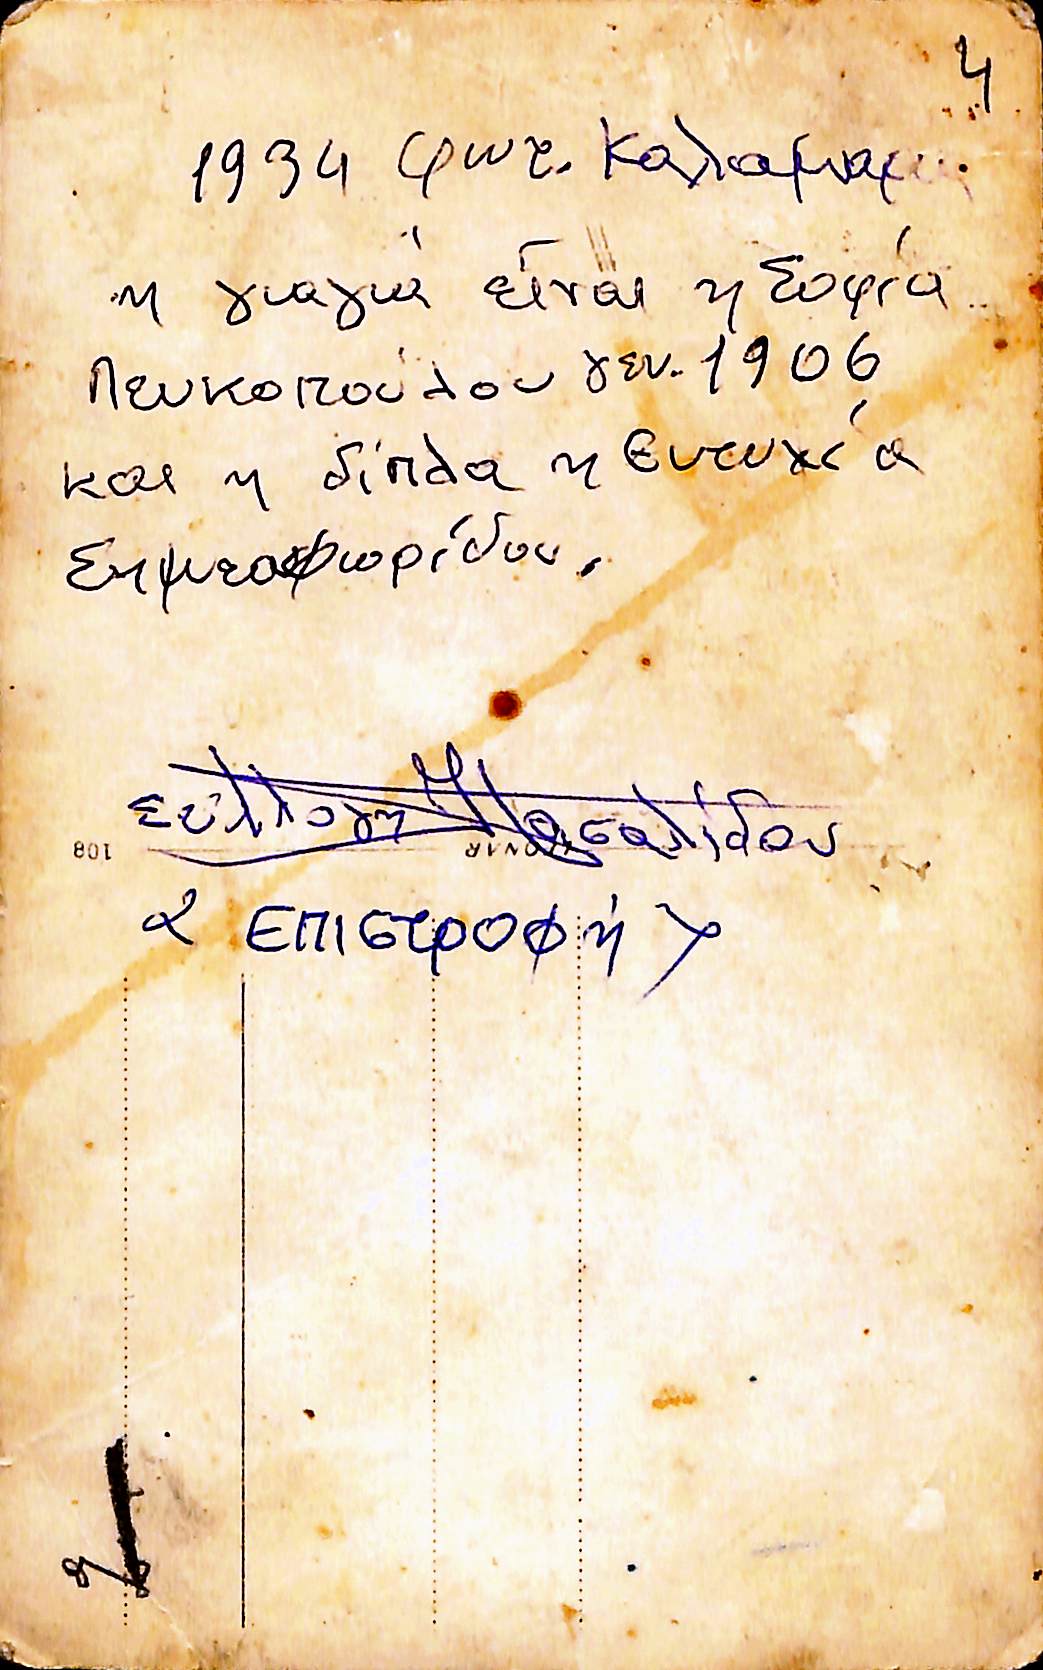 4
1934 φωτ.
η γιαγιά είναι η Σοφία
Πευκοπούλου γεν. 1906
και η δίπλα η Ευτυχία
Σημεοφορίδου.
συλλογη Πασαλίδου
108
ΕΠΙστροφή